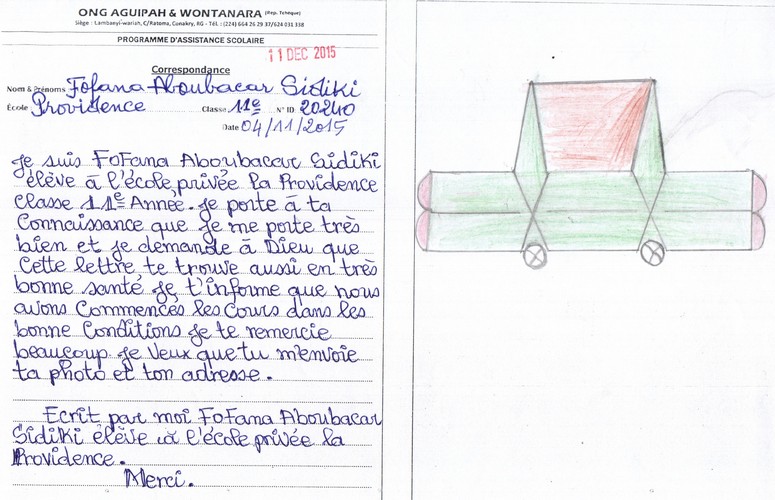 ONG AGUIPAH & WONTANARA (Rep. Tchèque)
Siège : Lambanyi-wariah, C/Ratoma, Conakry, RG - Tél. : (224) 664 26 29 37/624 031 338
PROGRAMME D'ASSISTANCE SCOLAIRE
11 DEC 2015
Correspondance
Nom & Prénoms Fofana Aboubacar Sidiki
École Providence Classe 11e N° ID 20240
Date 04/11/2015
Je suis FoFana Aboubacar Sidiki
élève à l'école privée la Providence
classe 11e Année. Je porte à ta
Connaissance que je me porte très
bien et je demande à Dieu que
Cette lettre te trouve aussi en très
bonne santé Je t'informe que nous
avons Commencés les Cours dans les
bonne Conditions Je te remercie
beaucoup. Je Veux que tu m'envoie
ta photo et ton adresse.
Ecrit par moi FoFana Aboubacar
Sidiki élève à l'école privée la
Providence.
Merci.